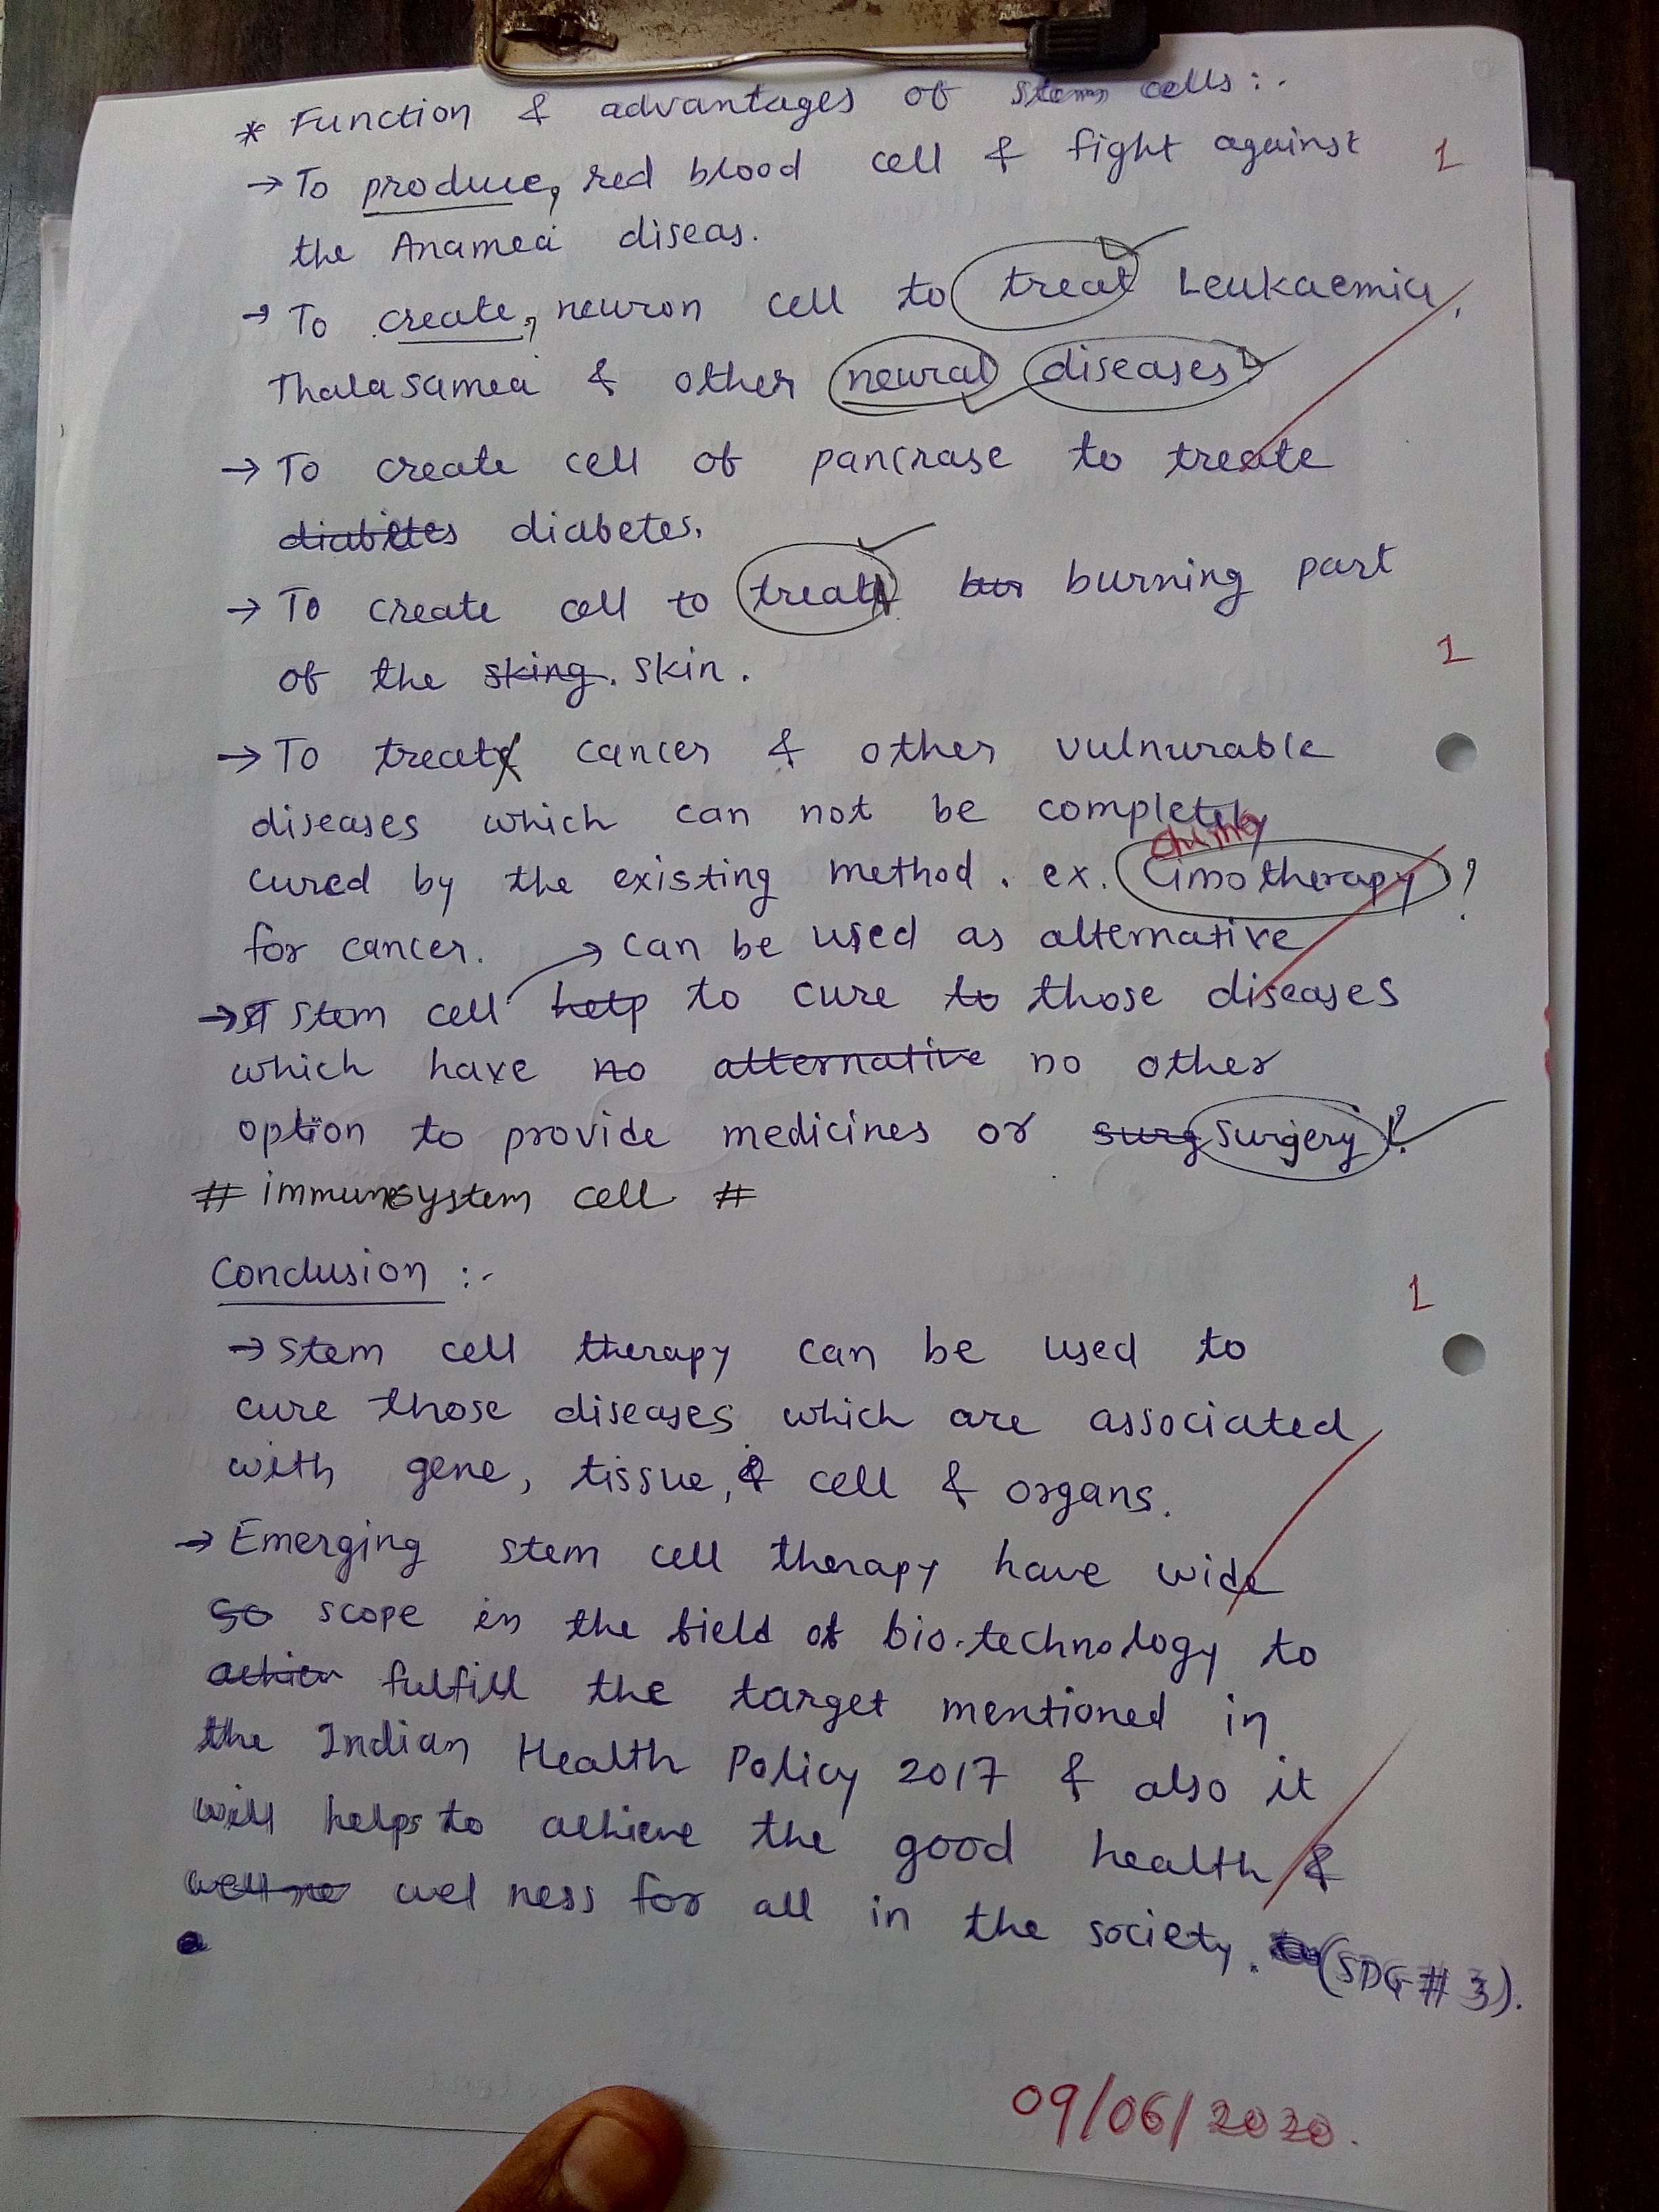 * Function & advantages of stem cells :-
→ To produce, red blood cell & fight against
1
the Anamea diseas.
→ To create, neuron cell to treat Leukaemia,
Thalasamea & other neural diseases.
→ To create cell of pancrase to treate
diabittes diabetes.
→ To create cell to treat bur burning part
of the sking. skin.
1
→ To treat cancer & other vulnurable
diseases which can not be completely
chimo
cured by the existing method. ex. Cimotherapy ?
for cancer.
→ can be used as alternative
→ Stem cell help to cure to those diseases
which have no alternative no other
option to provide medicines or surg surgery.
# immunesystem cell #
Conclusion :-
1
→ Stem cell therapy can be used to
cure those diseases which are associated
with gene, tissue, & cell & organs.
→ Emerging stem cell therapy have wide
so scope in the field of bio-technology to
achiev fulfill the target mentioned in
the Indian Health Policy 2017 & also it
will helps to achieve the good health &
well ne wel ness for all in the society. (SDG # 3).
09/06/2020.